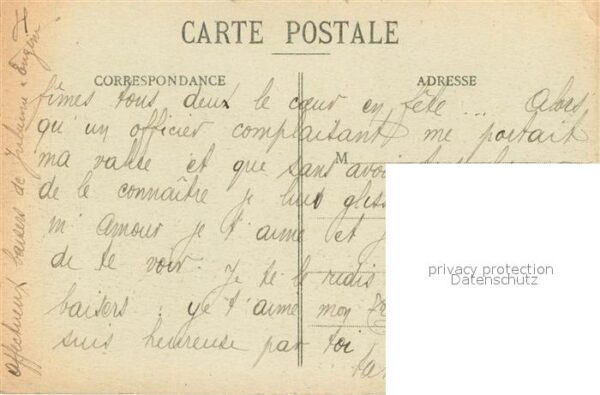 CARTE POSTALE
CORRESPONDANCE
ADRESSE
fîmes tous deux le cœur en fête ... Alors
qu'un officier complaisant me portait
ma valise et que sans avoir
M
de le connaître je lui gliss
m'amour je t'aime et j
de te voir. Je te le redis
baisers : je t'aime mon
suis heureuse par toi
Affectueux baisers de Julienne Eugène
privacy protection
Datenschutz